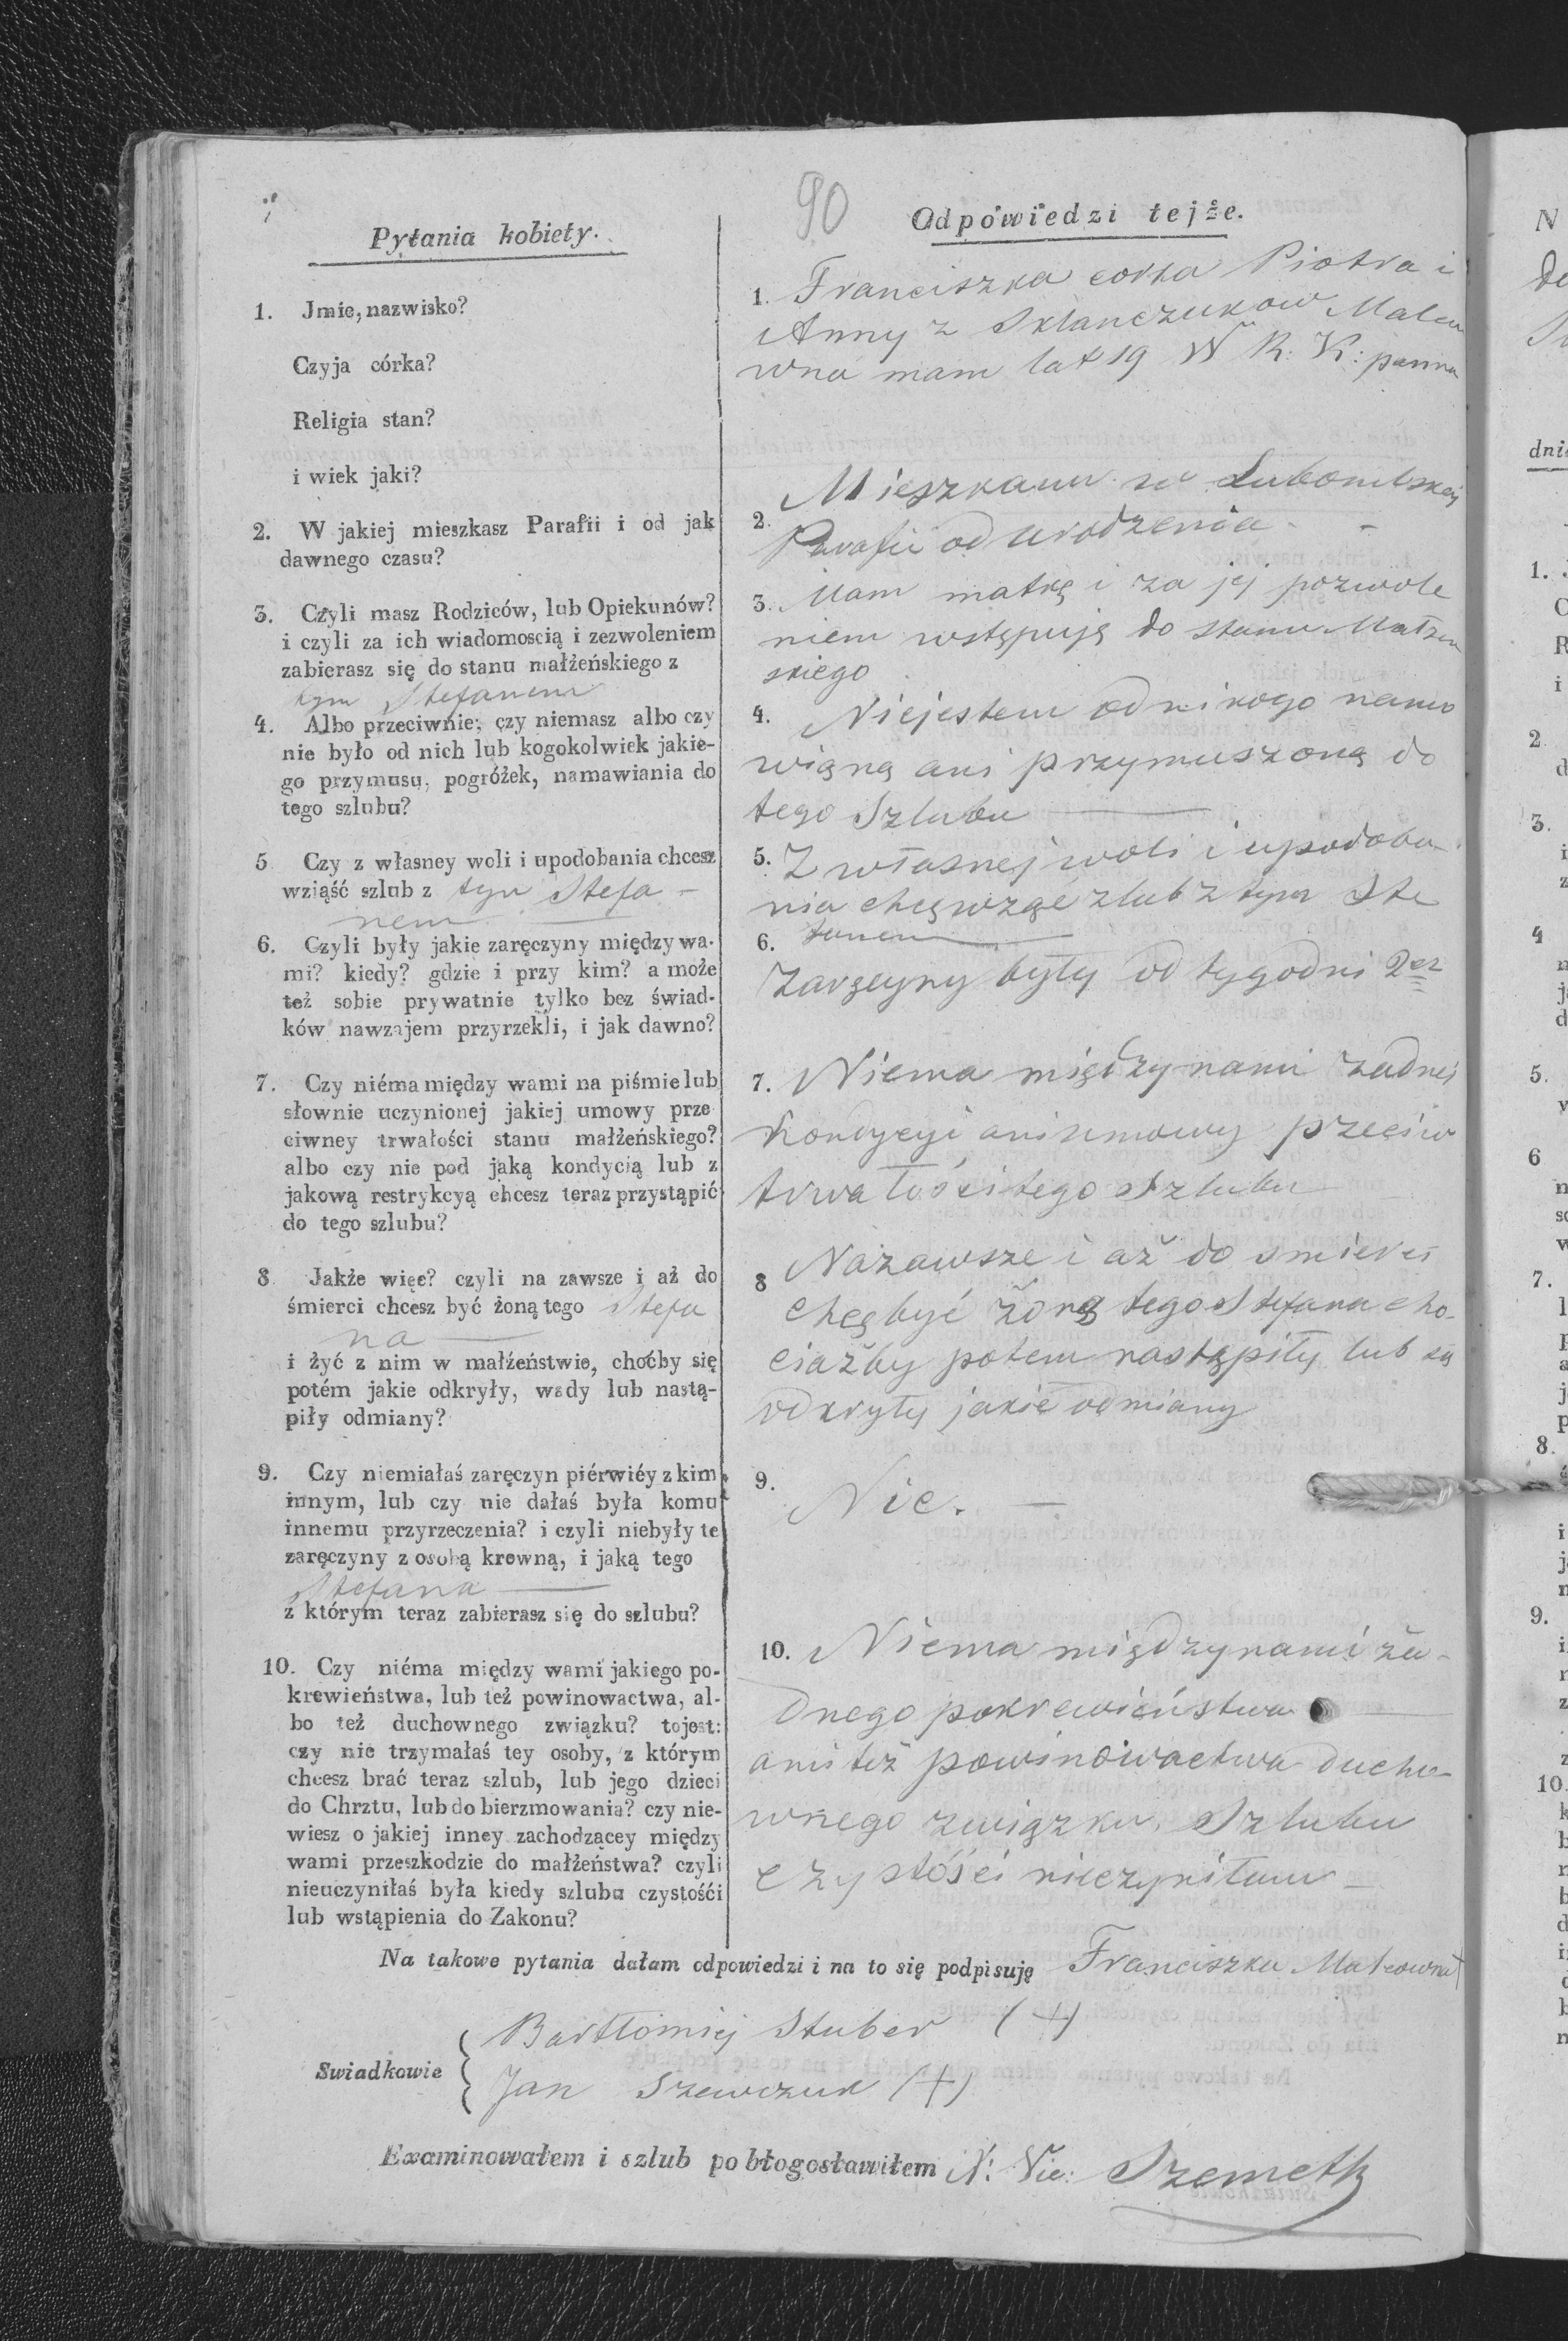 90
Pytania kobiety.
1. Jmie, nazwisko?
Czyja córka?
Religia stan?
i wiek jaki?
2. W jakiej mieszkasz Parafii i od jak
dawnego czasu?
3. Czyli masz Rodziców, lub Opiekunów?
i czyli za ich wiadomoscią i zezwoleniem
zabierasz się do stanu małżeńskiego z
tym Stefanem
4. Albo przeciwnie; czy niemasz albo czy
nie było od nich lub kogokolwiek jakie-
go przymusu, pogróżek, namawiania do
tego szlubu?
5 Czy z własney woli i upodobania chcesz
wziąść szlub z tym Stefa-
nem
6. Czyli były jakie zaręczyny między wa-
mi? kiedy? gdzie i przy kim? a może
też sobie prywatnie tylko bez świad-
ków nawzajem przyrzekli, i jak dawno?
7. Czy niéma między wami na piśmie lub
słownie uczynionej jakiej umowy prze
ciwney trwałości stanu małżeńskiego?
albo czy nie pod jaką kondycią lub z
jakową restrykcyą chcesz teraz przystąpić
do tego szlubu?
8 Jakże więc? czyli na zawsze i aż do
śmierci chcesz być żoną tego Stefa
na
i żyć z nim w małżeństwie, choćby się
potém jakie odkryły, wady lub nastą-
piły odmiany?
9. Czy niemiałaś zaręczyn piérwiéy z kim
innym, lub czy nie dałaś była komu
innemu przyrzeczenia? i czyli niebyły te
zaręczyny z osobą krewną, i jaką tego
Stefana
z którym teraz zabierasz się do szlubu?
10. Czy niéma między wami jakiego po-
krewieństwa, lub też powinowactwa, al-
bo też duchownego związku? tojest:
czy nie trzymałaś tey osoby, z którym
chcesz brać teraz szlub, lub jego dzieci
do Chrztu, lub do bierzmowania? czy nie-
wiesz o jakiej inney zachodzącey między
wami przeszkodzie do małżeństwa? czyli
nieuczyniłaś była kiedy szlubu czystośći
lub wstąpienia do Zakonu?
Odpowiedzi tejże.
1. Franciszka corka Piotra i
Anny z Sklanczukow
wna mam lat 19 W R: K: panna
2. Mieszkam w Lubomlskiej
Parafii od urodzenia -
3. Mam matkę i za jej pozwole
niem wstępuję do stanu Małżen
skiego
4. Niejestem od nikogo namo
wioną ani przymuszoną do
tego Szlubu
5. Z własnej woli i upodoba-
nia chcę wząć zlub z tym Ste
fanem
6.
Zaręcyny były od tygodni 2ch
7. Niema między nami żadnej
kondycyi ani umowy przeciw
trwałości tego Szlubu
8 Nazawsze i aż do smierci
chcę być żoną tego Stefana cho-
ciażby potem nastąpiły lub są
odkryły jakie odmiany
9. Nie. -
10. Niema między nami ża-
dnego pokrewieństwa
ani też powinowactwa ducho-
wnego związku. Szlubu
czystości nieczyniłam -
Na takowe pytania dałam odpowiedzi i na to się podpisuję Franciszka
Swiadkowie
Bartłomiej Stuber (+)
Jan Szewczuk (+)
Examinowałem i szlub pobłogosławiłem